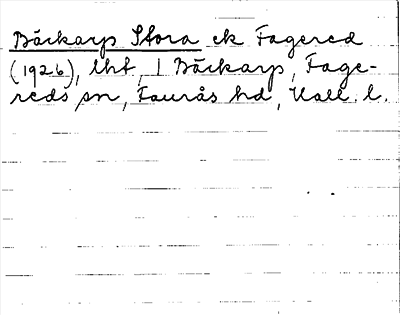 Bäckarps Stora ek Fagered
(1926), lht, 1 Bäckarp, Fage-
reds sn, Faurås hd, Hall. l.